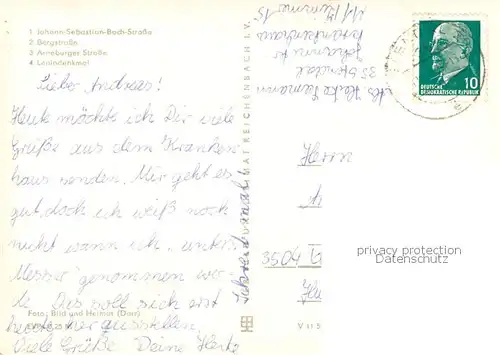 1 Johann-Sebastian-Bach-Straße
2 Bergstraße
3 Arneburger Straße
4 Lenindenkmal
Lieber Andreas!
Heute möchte ich Dir viele
Grüße aus dem Kranken-
haus senden. Mir geht es
gut, doch ich weiß noch
nicht wann ich „unters
Messer" genommen wer-
de. Das soll sich erst
heraus
ausstellen.
Viele Grüße Deine
Foto: Bild und Heimat (Darr)
BILD UND HEIMAT REICHENBACH I. V.
V 11 5
35 Stendal
Johanniter
Krankenhaus
Zimmer 15
DEUTSCHE
DEMOKRATISCHE REPUBLIK
10
Herrn
3504
privacy protection
Datenschutz